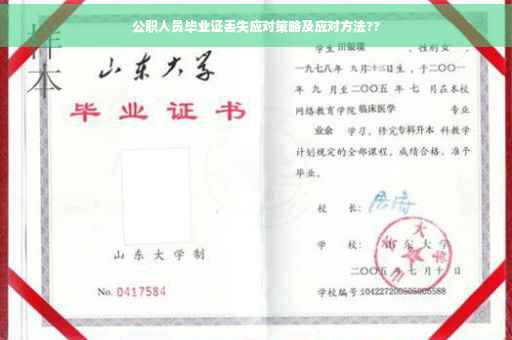 公职人员毕业证丢失应对策略及应对方法??
样本
山东大学
毕业证书
山东大学制
No. 0417584
学生 田银瑞 ，性别 女 ，
一九七八年 九月十三日生，于二○○一
年 九 月至二○○五 年 七 月在本校
网络教育学院 临床医学 专业
业余 学习，修完 专科升本 科教学
计划规定的全部课程，成绩合格，准予
毕业。
校 长：
学 校：山东大学
二○○五年七月十日
学校编号：